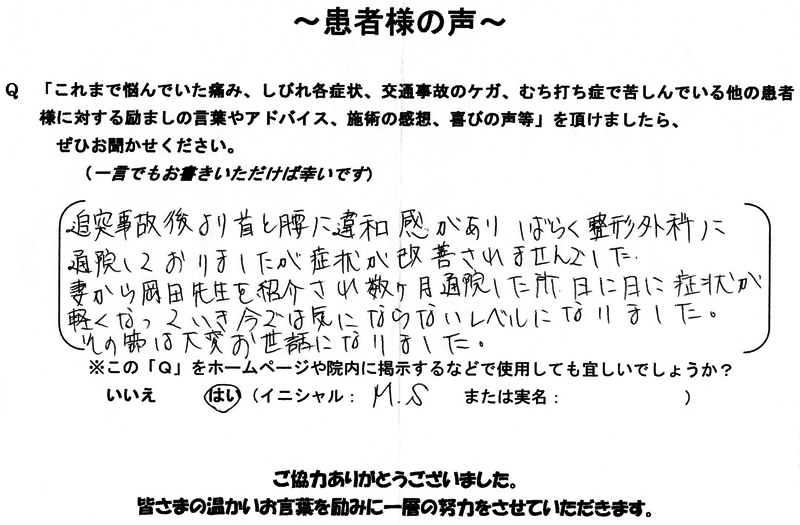 ～患者様の声～
Q 「これまで悩んでいた痛み、しびれ各症状、交通事故のケガ、むち打ち症で苦しんでいる他の患者
様に対する励ましの言葉やアドバイス、施術の感想、喜びの声等」を頂けましたら、
ぜひお聞かせください。
（一言でもお書きいただけば幸いです）
追突事故後より首と腰に違和感があり しばらく整形外科に
通院しておりましたが症状が改善されませんでした.
妻から岡田先生を紹介され数ヶ月通院した所 日に日に症状が
軽くなっていき今では気にならないレベルになりました。
その節は大変お世話になりました。
※この「Q」をホームページや院内に掲示するなどで使用しても宜しいでしょうか？
いいえ はい（イニシャル： M.S または実名： ）
ご協力ありがとうございました。
皆さまの温かいお言葉を励みに一層の努力をさせていただきます。